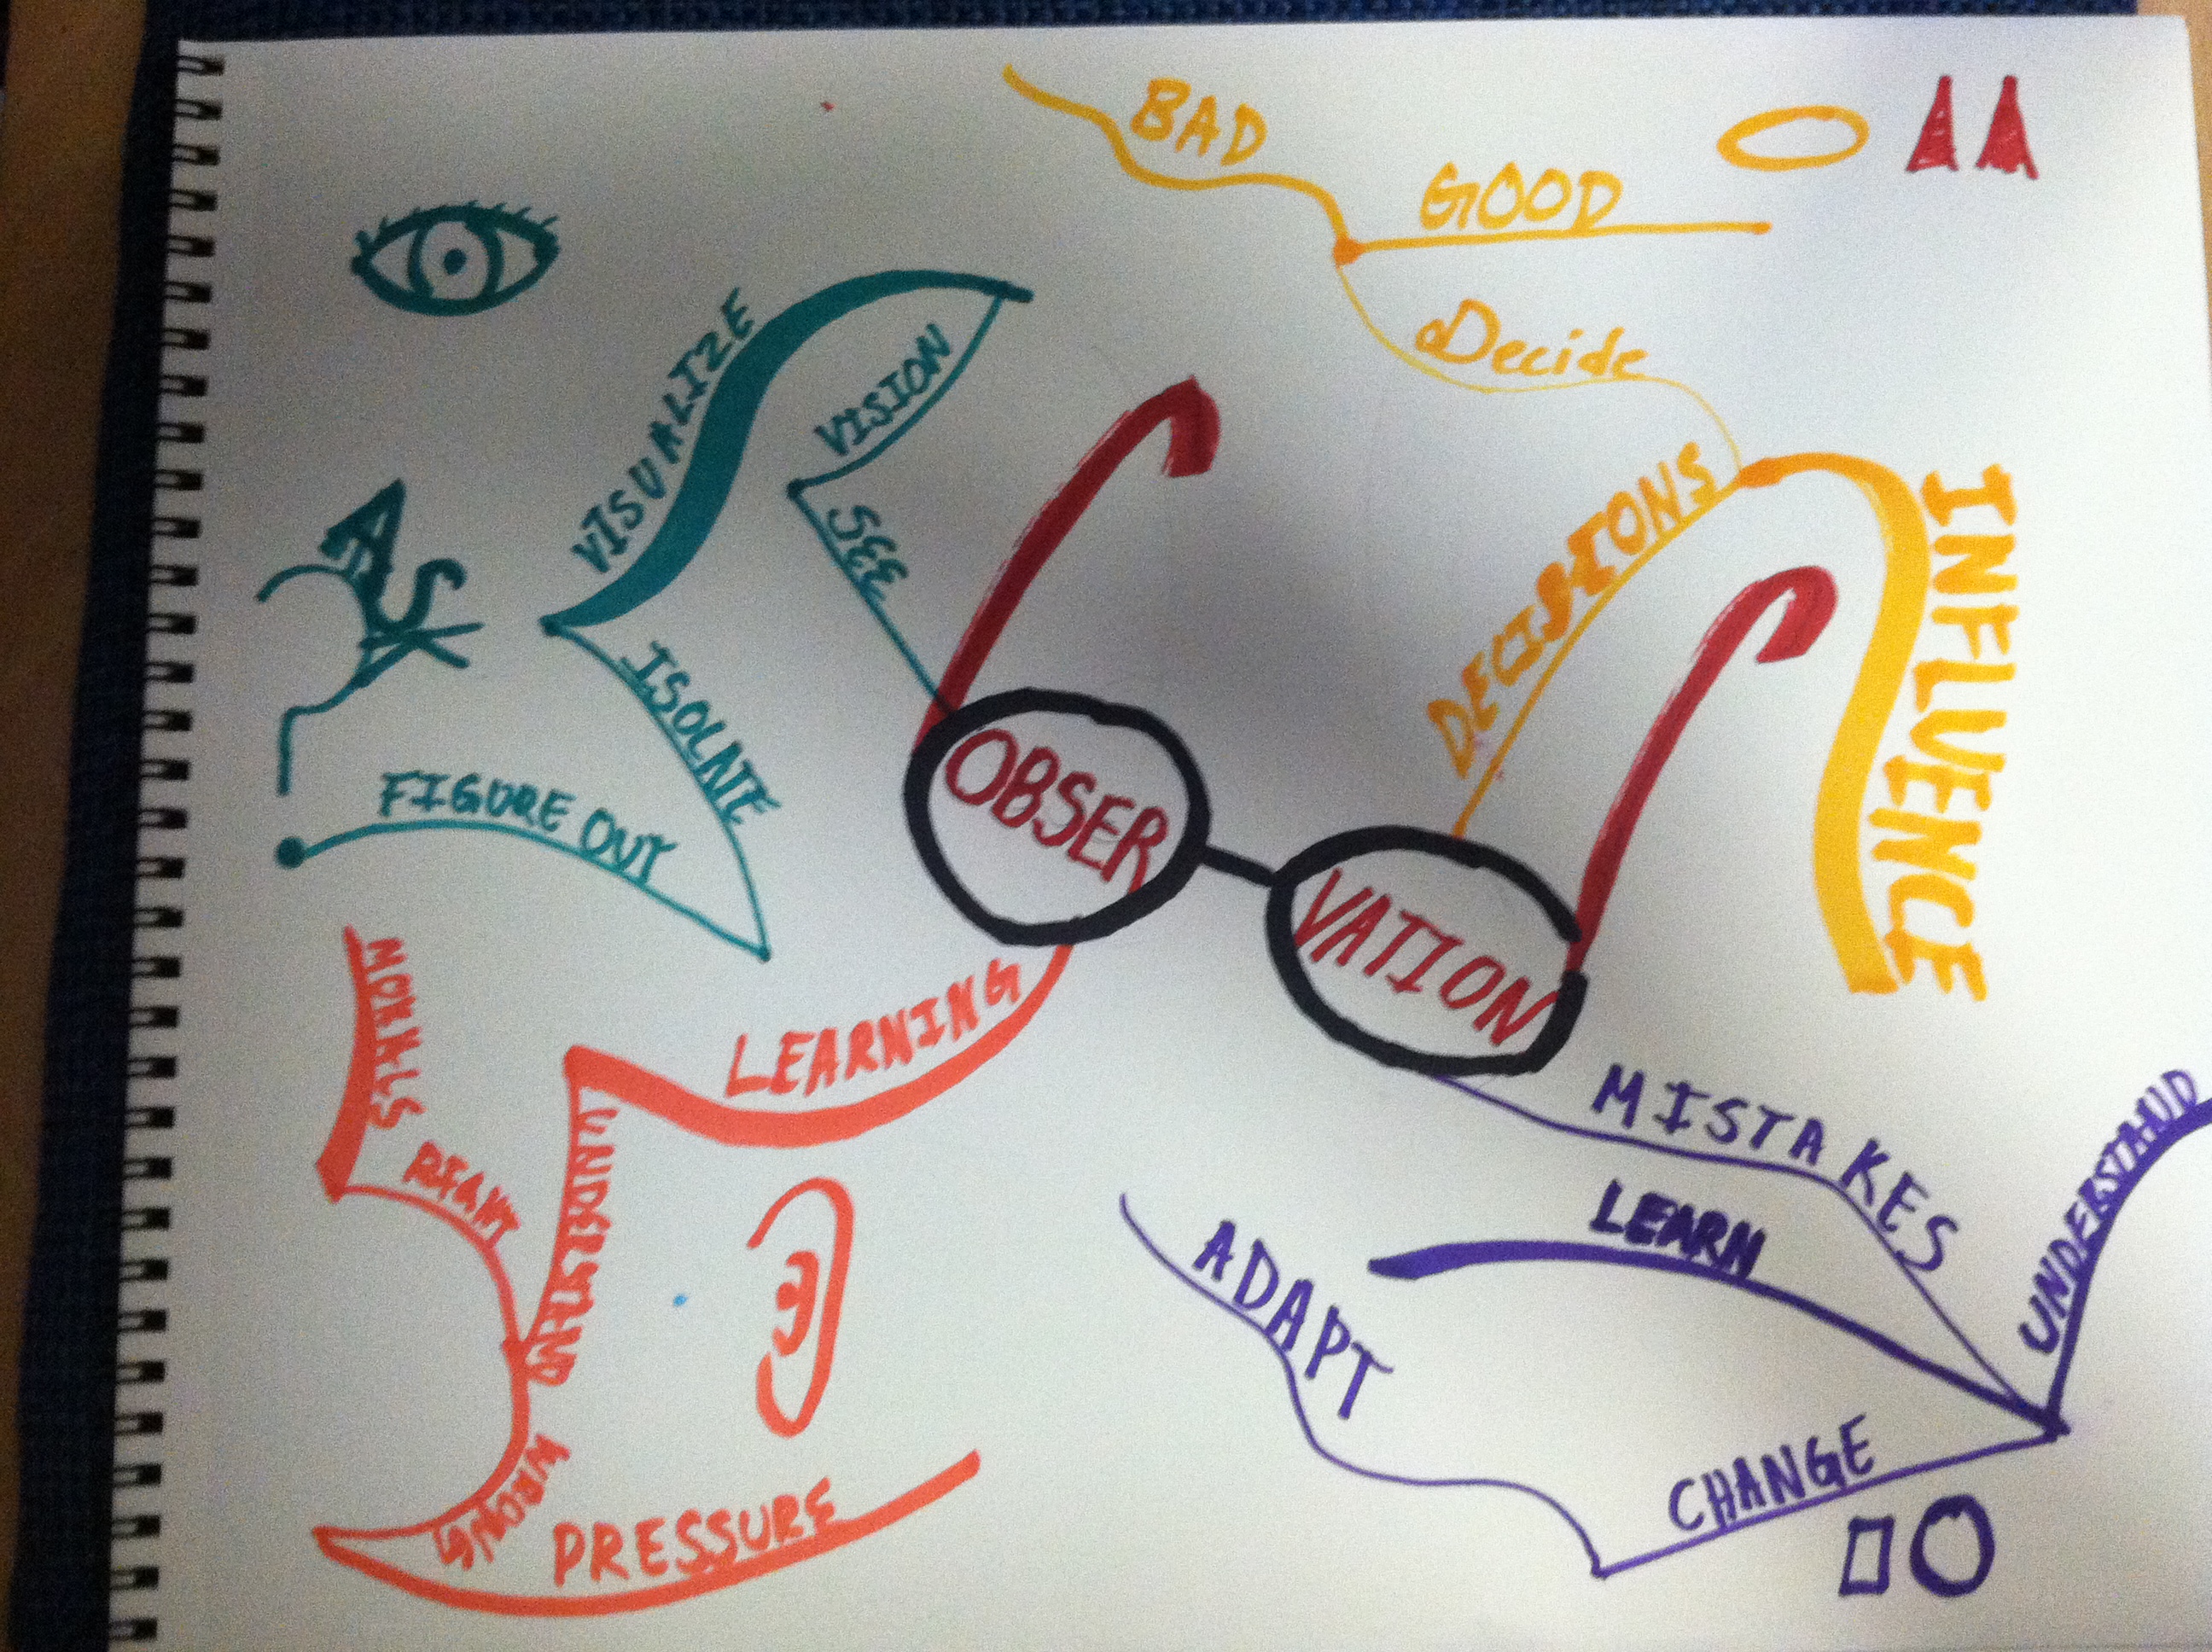 BAD
GOOD
Decide
DECISIONS
INFLUENCE
VISUALIZE
VISION
SEE
ISOLATE
FIGURE OUT
ASK
OBSER
VATION
LEARNING
UNDERSTAND
RIGHT
MORALS
WRONG
PRESSURE
MISTAKES
LEARN
UNDERSTAND
CHANGE
ADAPT